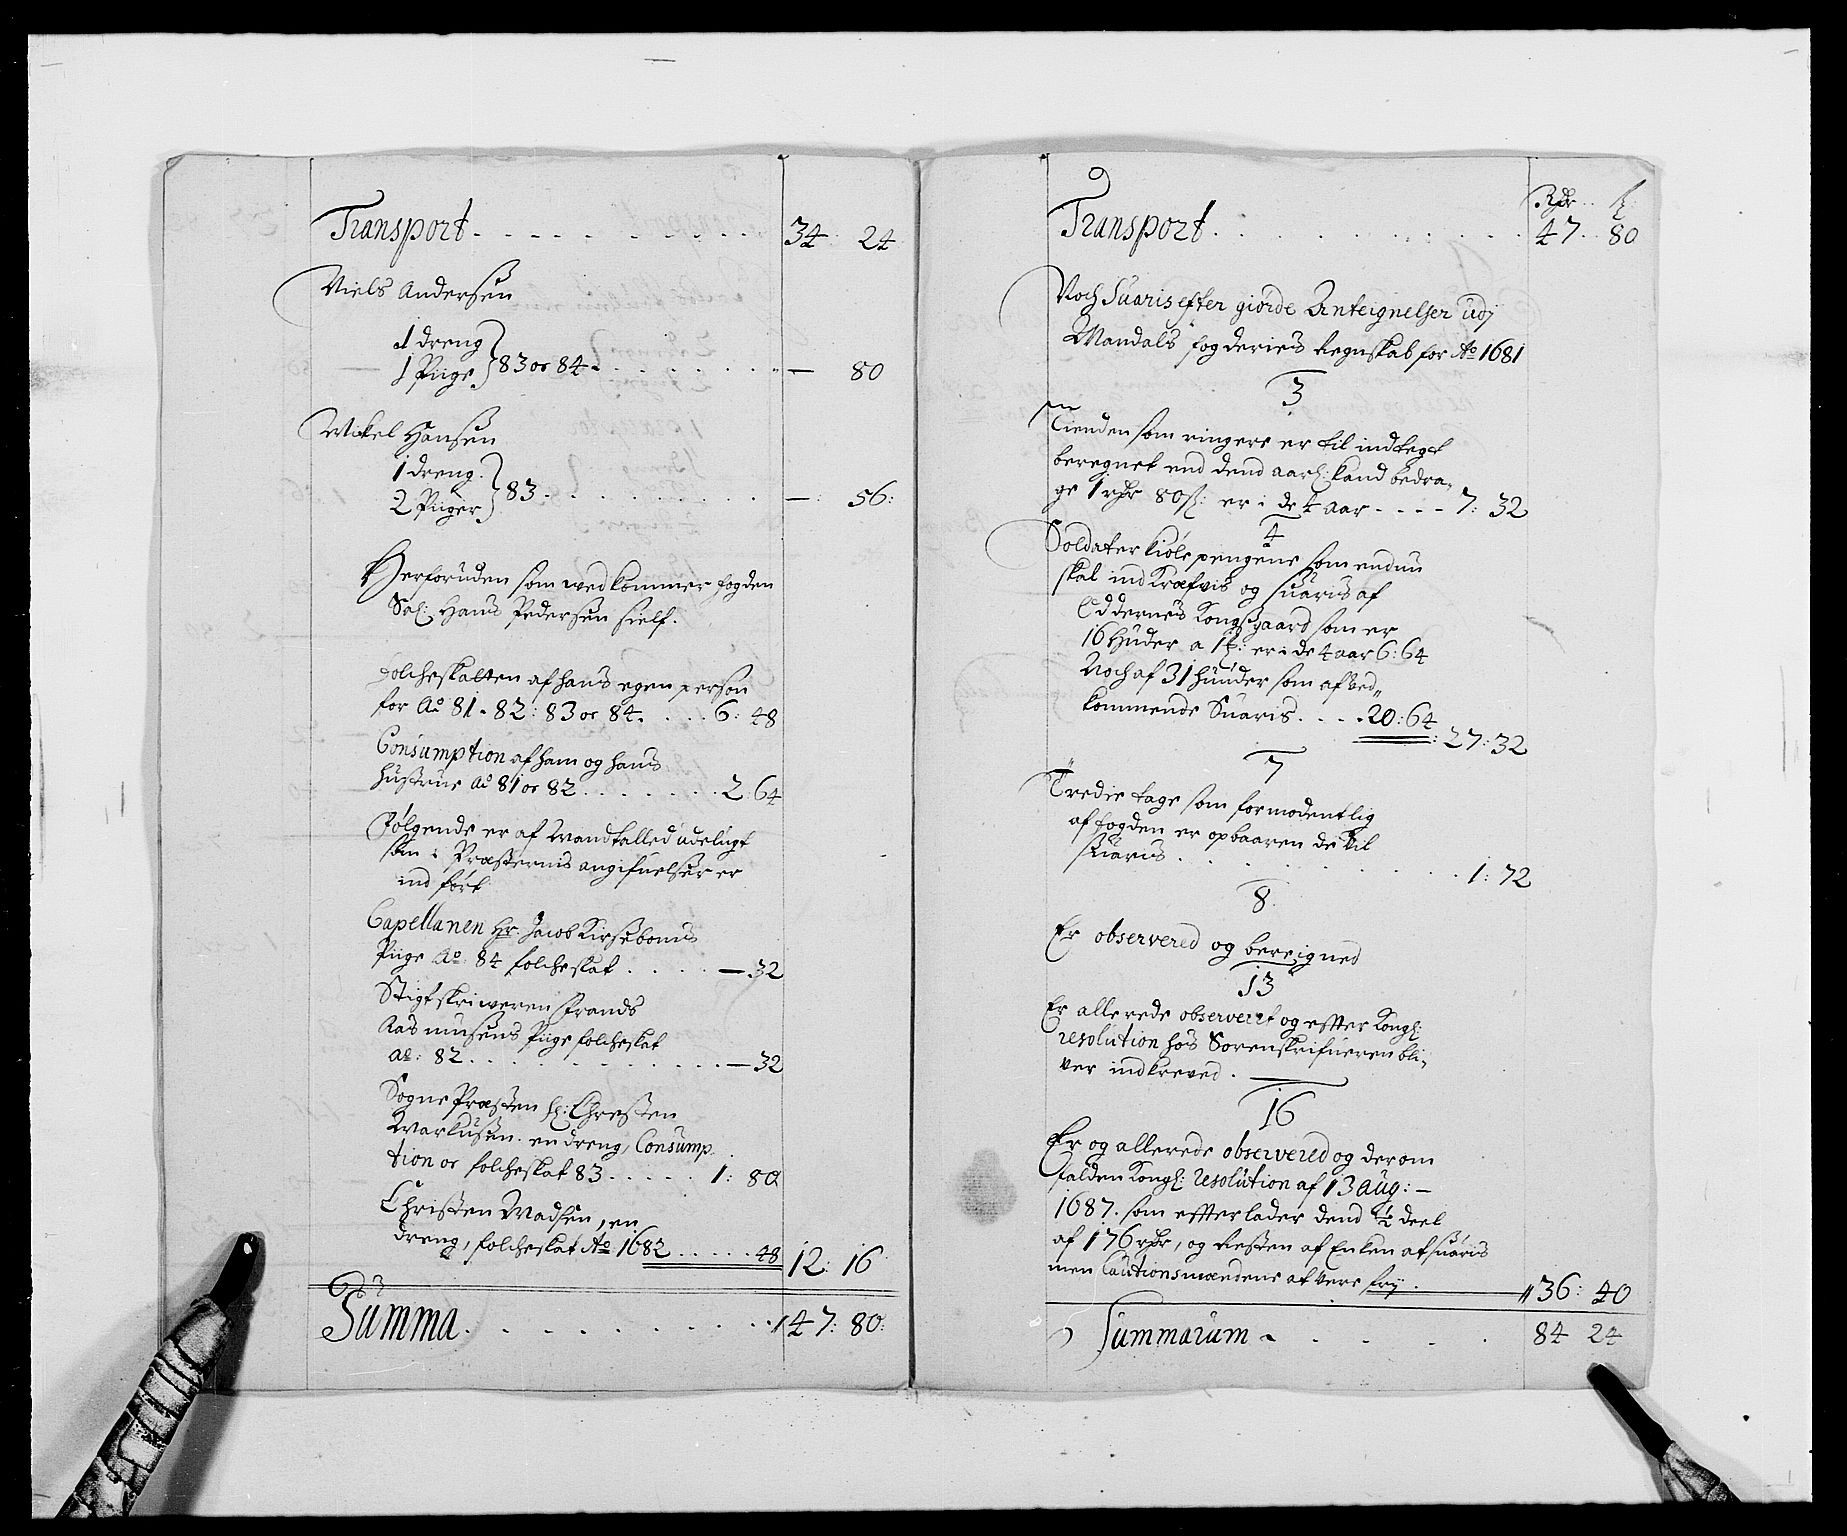 Transport - - - - - - - - - 34 24
Niels Andersen
1 dreng
1 Piige } 83 oc 84 - . . . . . . . — 80
Mikel Hansen
1 dreng
2 Piiger } 83 . . . . . . . . — : 56:
Herforuden som wedkommer fogden
Sal: Hans Pedersen sielf.
folcheskatten af hans egen person
for Ao 81 - 82: 83 oc 84 . . . . 6: 48
Consumption af ham og hans
hustrue Ao 81 oc 82 . . . . . . . 2: 64
Følgende er af Mandtalled udelugt
som i Præsternis angifuelser er
ind ført
Capellanen Hr: Jacob Kirseboms
Piige Ao: 84 folcheskat . . . . . — 32
Stigtskriweren Frands
Rasmusens Piige folcheskat
ao: 82 . . . . . . . . . . . — 32
Sogne Præsten Hr: Christen
Markusen. en dreng, Consump
tion oc folcheskat 83 . . . . . 1: 80
Christen Madsen, en
dreng, folcheskat Ao 1682 . . . . . 48 12: 16
Summa . . . . . . . . . . 47: 80:
9
Rdr .. ß
Transport . . . . . . . . . . 47 .. 80
Noch Suaris efter giørde Anteignelser udj
Mandals fogderies Regnskab for Ao 1681
3
Tienden som ringere er til indtegt
beregnet end dend aarl: kand bedra-
ge 1 rdr 80 ß: er i de 4 aar - - - - 7: 32
4
Soldater kiole pengene som endnu
skal indkræfvis og suaris af
Oddernes Kongsgaard som er
16 Huder a 1 ort: er i de 4 aar 6: 64
Noch af 31 huuder som af Ved-
kommende Suaris . . . . 20: 64
: 27: 32
7
Tredie tage som formodentlig
af fogden er opbaaren de til
suaris . . . . . . . . . . . 1: 72
8
Er observered og bereigned
13
Er allerede observeret og effter Kongl:
resolution hos Sorenskrifueren bli-
ver indkreved .
16
Er og allerede observered og derom
falden Kongl: resolution af 13 Aug: —
1687. som effterlader dend ½ deel
af 176 rdr, og Resten af Enken at suaris
men Cautionsmændene at vere frij . 36: 40
Summarum - . . . . 84 24